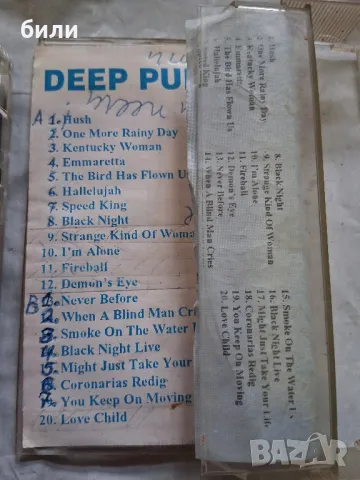 DEEP PU
A 1. Hush
2. One More Rainy Day
3. Kentucky Woman
4. Emmaretta
5. The Bird Has Flown Us
6. Hallelujah
7. Speed King
8. Black Night
9. Strange Kind Of Woma
10. I'm Alone
11. Fireball
12. Demon's Eye
B 1. Never Before
2. When A Blind Man Cri
3. Smoke On The Water L
4. Black Night Live
5. Might Just Take Your
6. Coronarias Redig
7. You Keep On Moving
20. Love Child
1. Hush
2. One More Rainy Day
3. Kentucky Woman
4. Emmaretta
5. The Bird Has Flown Us
6. Hallelujah
Speed King
8. Black Night
9. Strange Kind Of Woman
10. I'm Alone
11. Fireball
12. Demon's Eye
13. Never Before
14. When A Blind Man Cries
15. Smoke On The Water Us
16. Black Night Live
17. Might Just Take Your Life
18. Coronarias Redig
19. You Keep On Moving
20. Love Child
bazar.bg
BAZAR